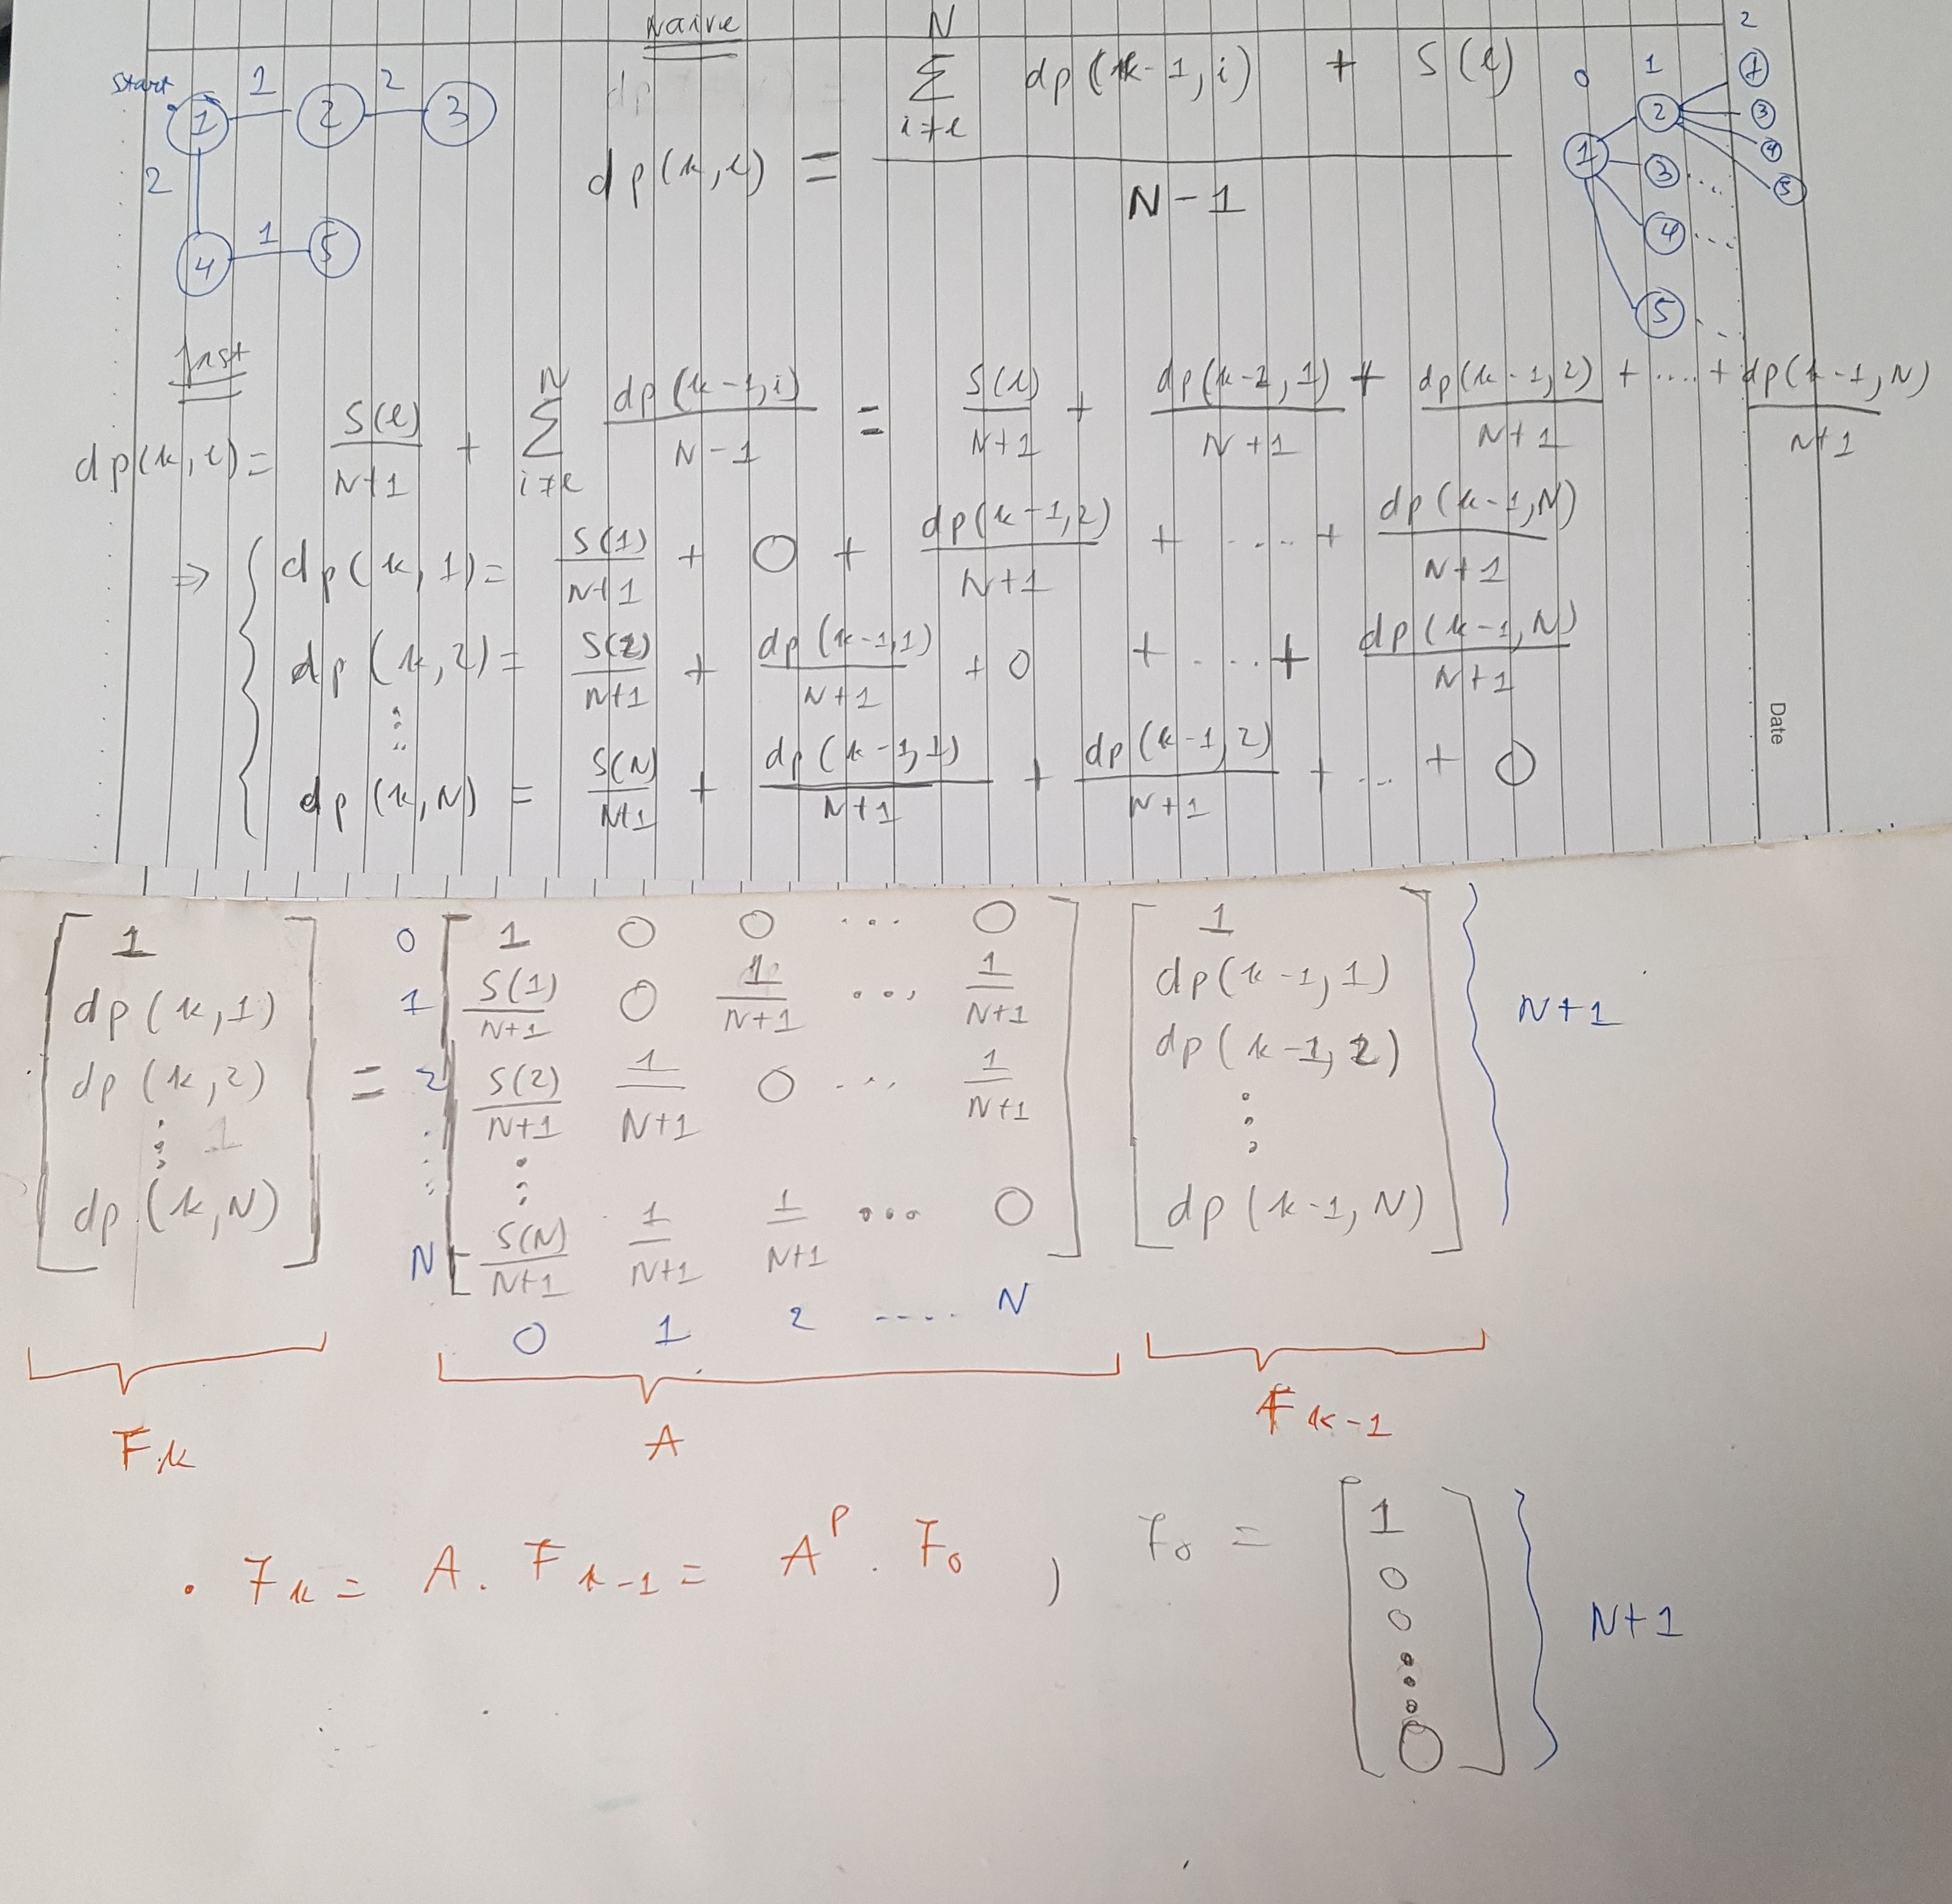 Naive
start 1 1 2 2 3
2
4 1 5
dp(k,l) = \frac{\sum_{i≠l}^{N} dp(k-1,i) + S(l)}{N-1}
0 1 2
1 2 3 4 5
1 3 4 5
fast
dp(k,l) = \frac{S(l)}{N+1} + \sum_{i≠l}^{N} \frac{dp(k-1,i)}{N-1} = \frac{S(l)}{N+1} + \frac{dp(k-1,1)}{N+1} + \frac{dp(k-1,2)}{N+1} + .... + \frac{dp(k-1,N)}{N+1}
⇒ { dp(k,1) = \frac{S(1)}{N+1} + 0 + \frac{dp(k-1,2)}{N+1} + .... + \frac{dp(k-1,N)}{N+1}
dp(k,2) = \frac{S(2)}{N+1} + \frac{dp(k-1,1)}{N+1} + 0 + .... + \frac{dp(k-1,N)}{N+1}
⋮
dp(k,N) = \frac{S(N)}{N+1} + \frac{dp(k-1,1)}{N+1} + \frac{dp(k-1,2)}{N+1} + ... + 0
Date
[1 dp(k,1) dp(k,2) ⋮ dp(k,N)] =
0 [1 0 0 ... 0]
1 [\frac{S(1)}{N+1} 0 \frac{1}{N+1} ... \frac{1}{N+1}]
2 [\frac{S(2)}{N+1} \frac{1}{N+1} 0 ... \frac{1}{N+1}]
⋮ ⋮
N [\frac{S(N)}{N+1} \frac{1}{N+1} \frac{1}{N+1} ... 0]
0 1 2 ..... N
[1 dp(k-1,1) dp(k-1,2) ⋮ dp(k-1,N)] } N+1
F_k A F_{k-1}
. F_k = A . F_{k-1} = A^P . F_0 , F_0 = [1 0 0 ⋮ 0] } N+1